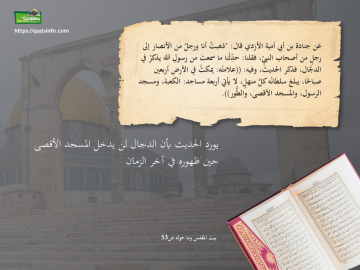 https://qudsinfo.com
عن جنادة بن أبي أمية الأزدي قال: "ذهبتُ أنا ورجلٌ من الأنصار إلى
رجل من أصحاب النبيّ، فقلنا: حدّثنا ما سمعت من رسول الله يذكر في
الدجّال، فذكر الحديث، وفيه: ((علامتُه: يمكثُ في الأرض أربعين
صباحًا، يبلغ سلطانُه كلّ منهلٍ، لا يأتي أربعة مساجد: الكعبة، ومسجد
الرسول، والمسجد الأقصى، والطّور)).
يورد الحديث بأن الدجال لن يدخل المسجد الأقصى
حين ظهوره في آخر الزمان
بيت المقدس وما حوله ص53